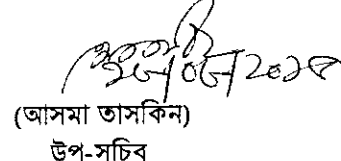 (আসমা তাসকিন)
উপ-সচিব